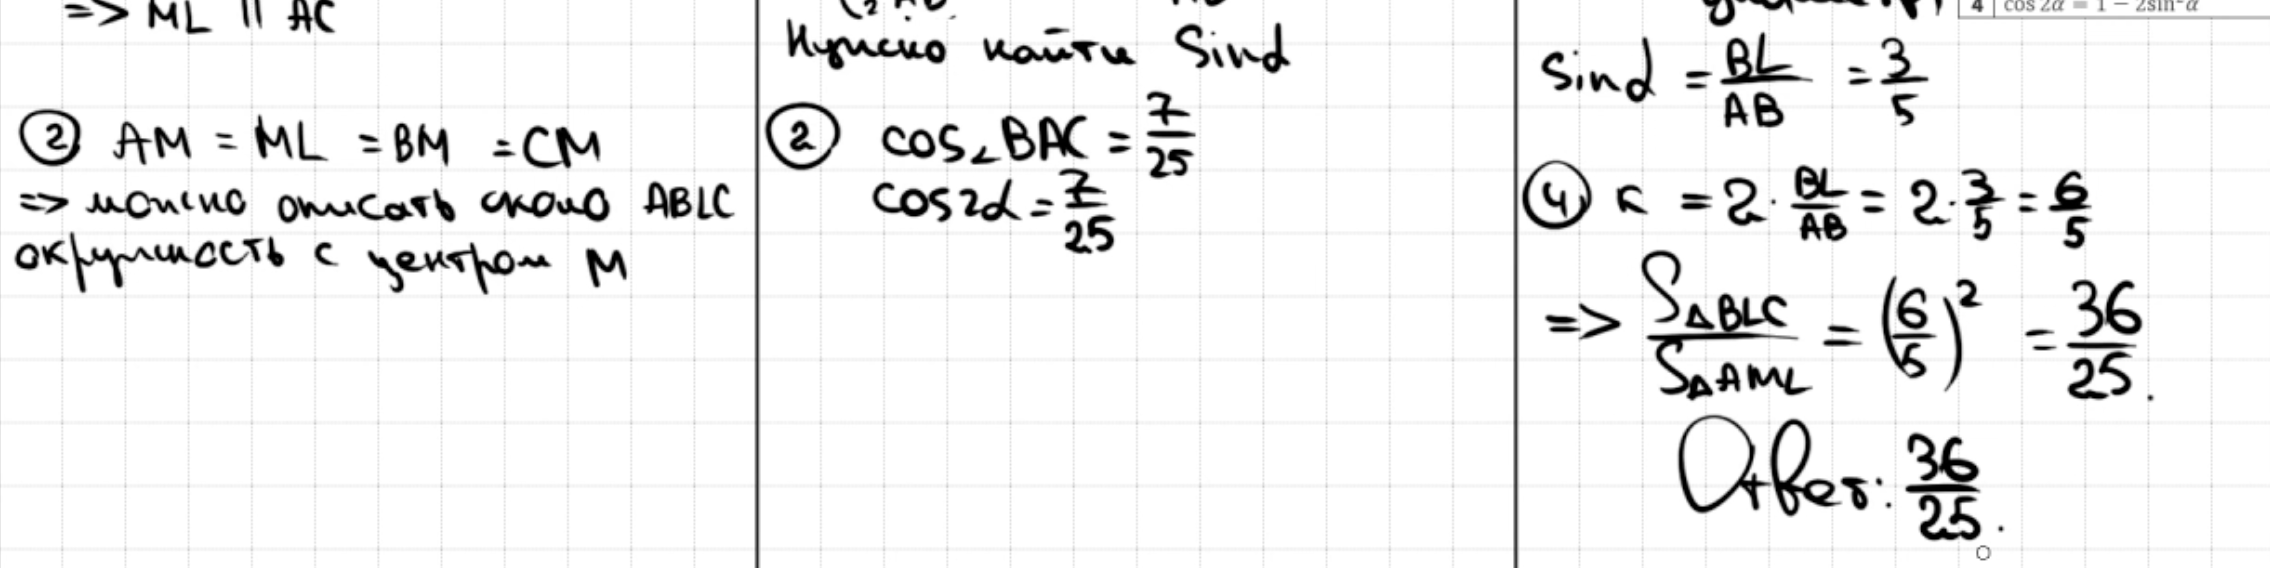 => ML || AC
② AM = ML = BM = CM
=> можно описать около ABLC
окружность с центром M
Нужно найти Sinα
② cos∠BAC = 7/25
cos2α = 7/25
4 cos 2α = 1 − 2sin²α
Sinα = BL/AB = 3/5
④ к = 2 · BL/AB = 2 · 3/5 = 6/5
=> S△BLC/S△AML = (6/5)² = 36/25.
Ответ: 36/25.